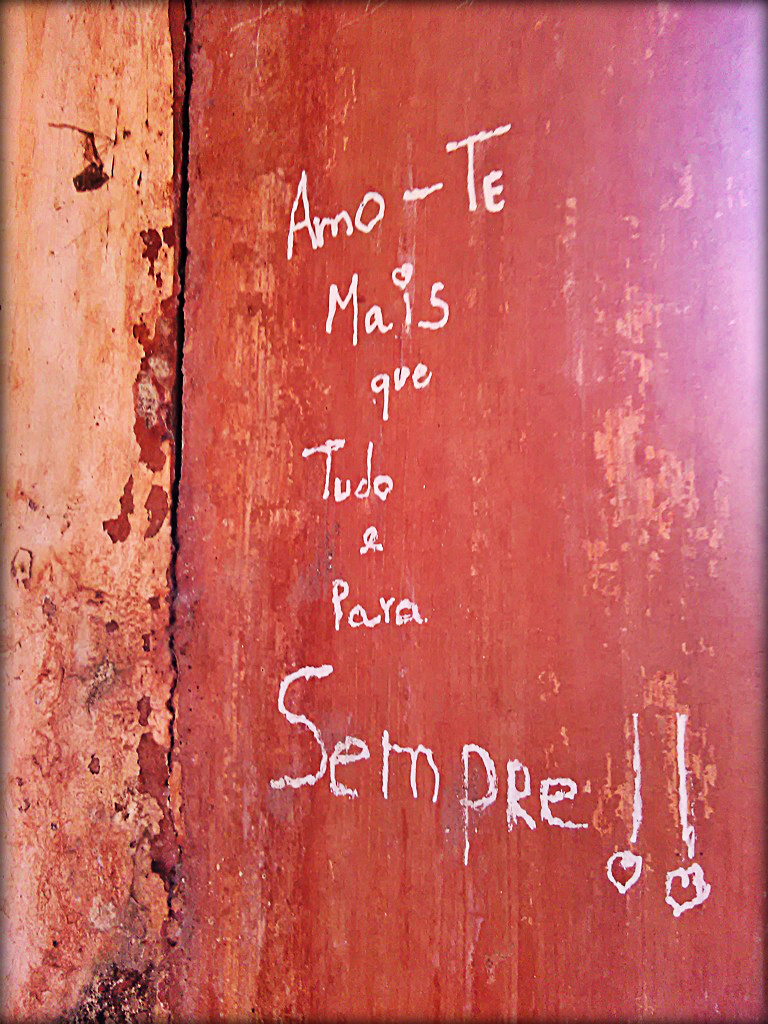 Amo-Te
Mais
que
Tudo
e
Para
Sempre!!